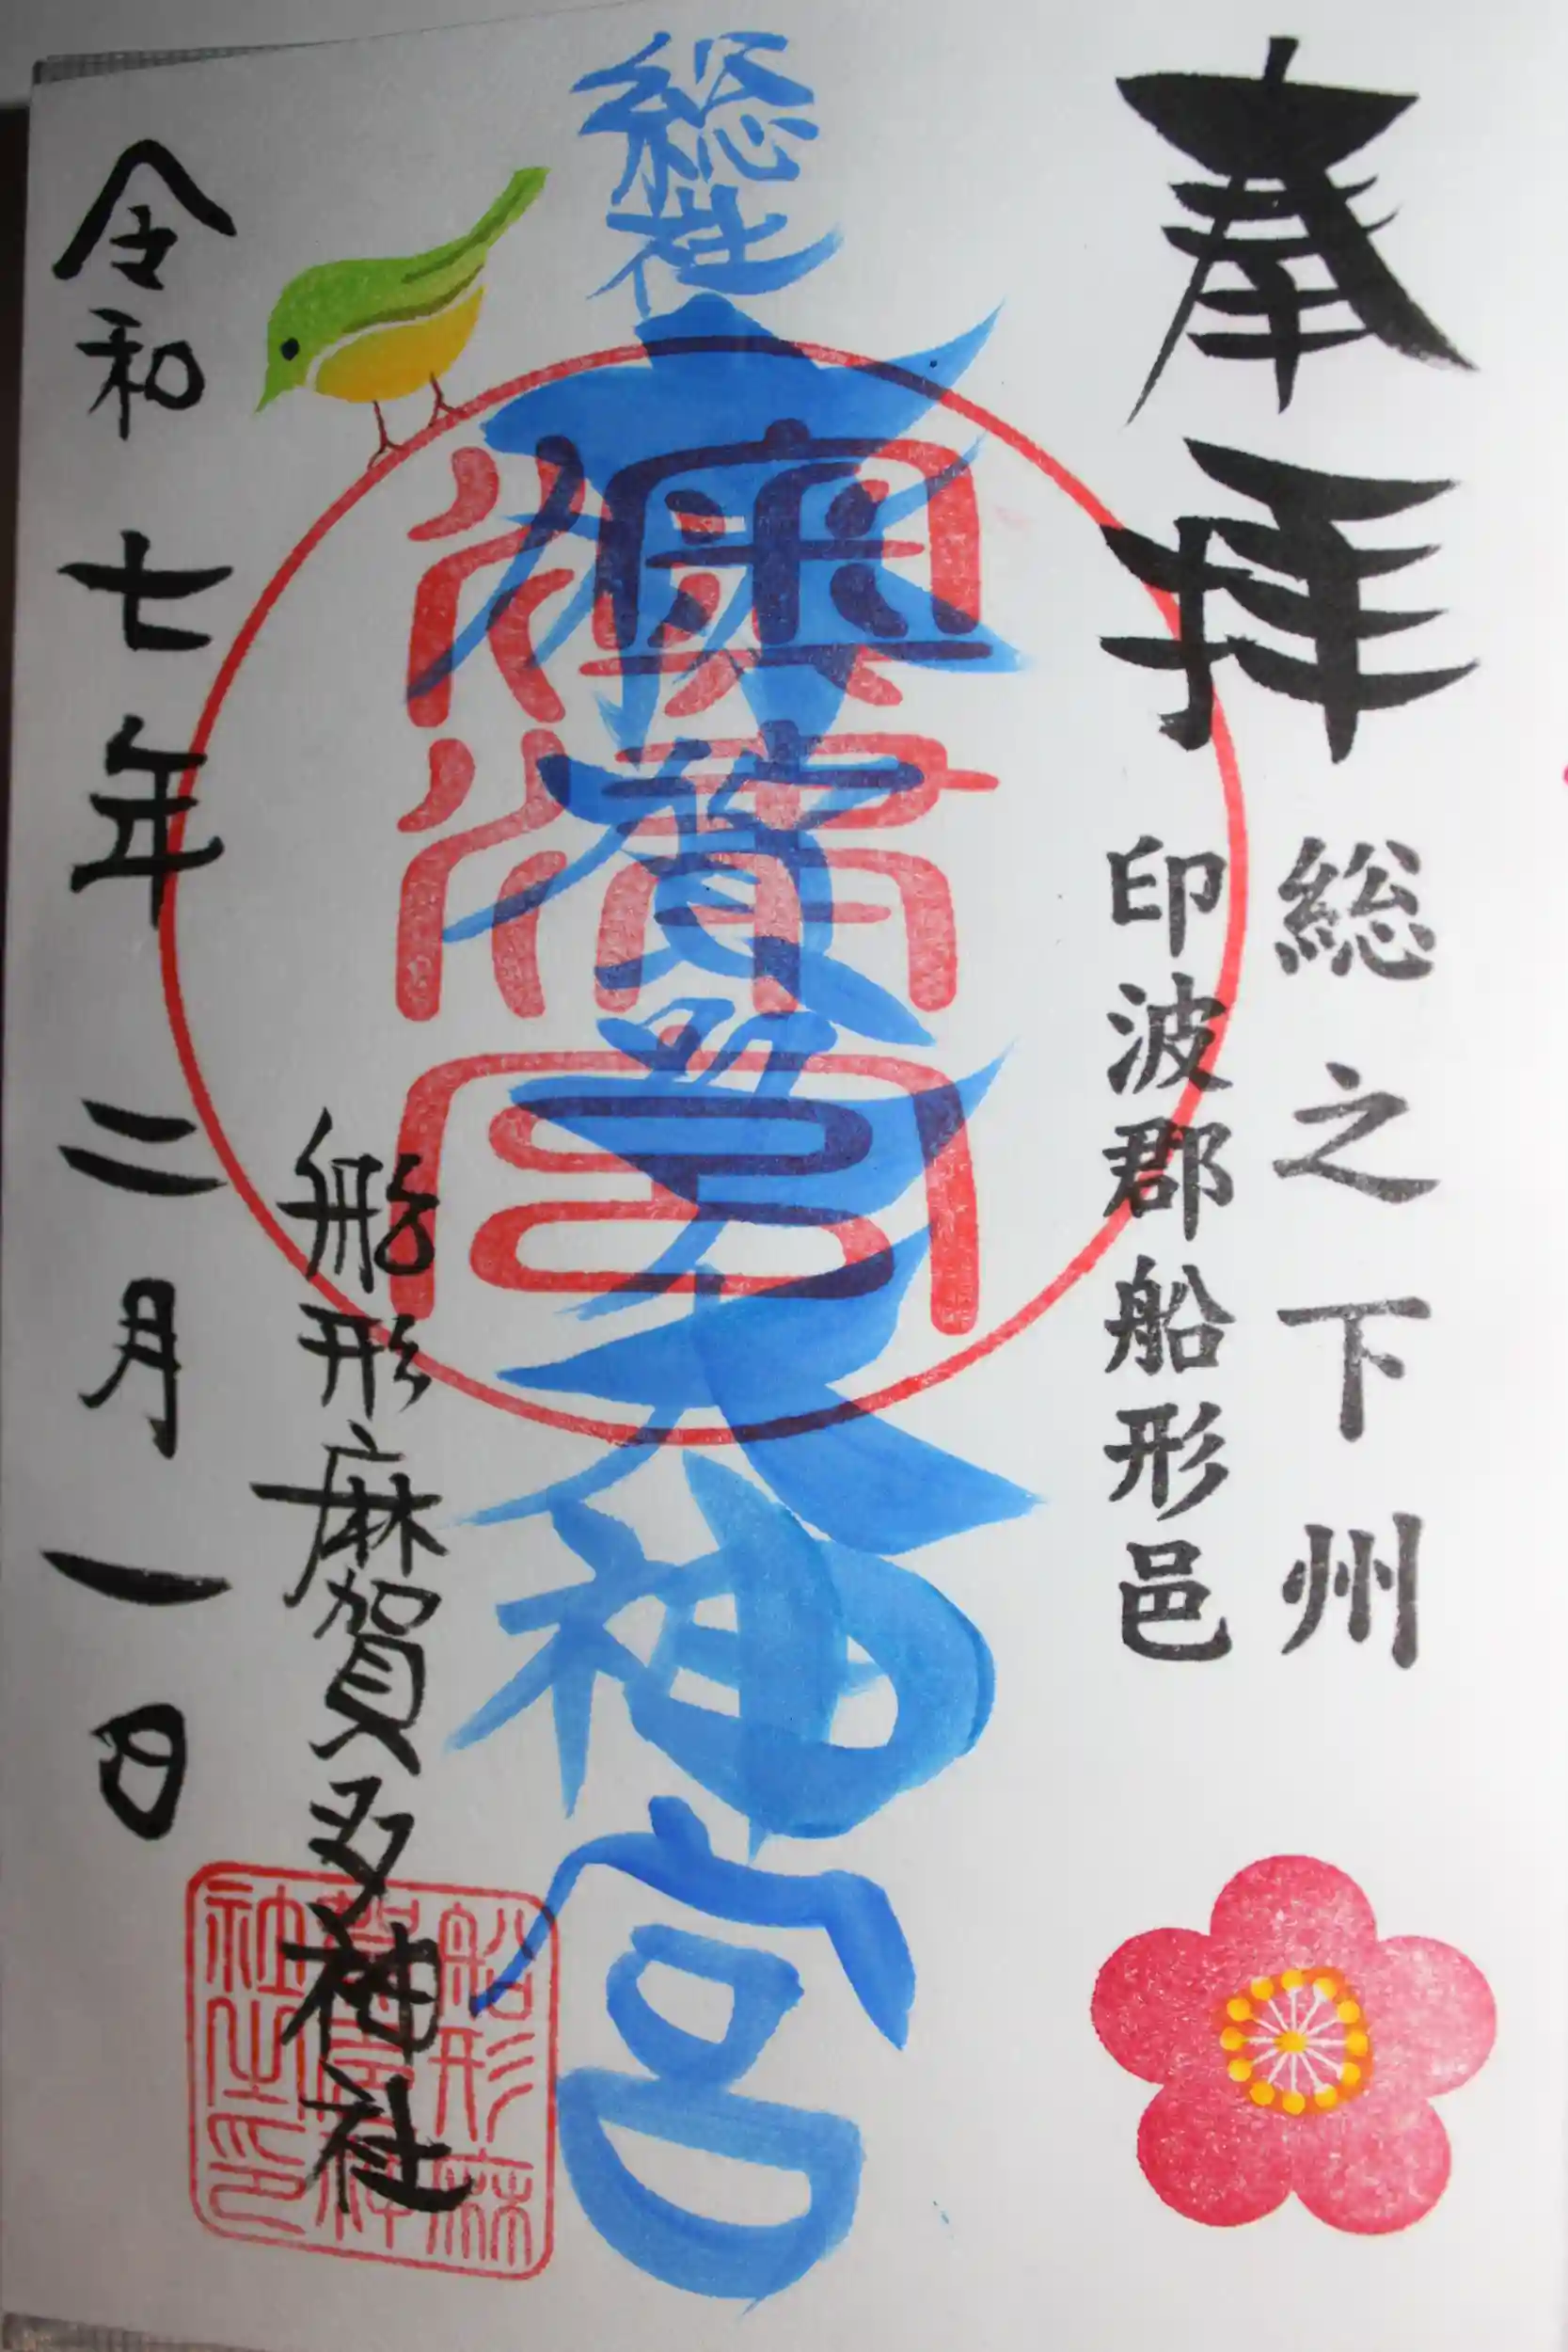 奉拝
総之下州
印波郡船形邑
総社
麻賀多大神宮
船形麻賀多神社
船形麻賀多神社之印
令和七年二月一日